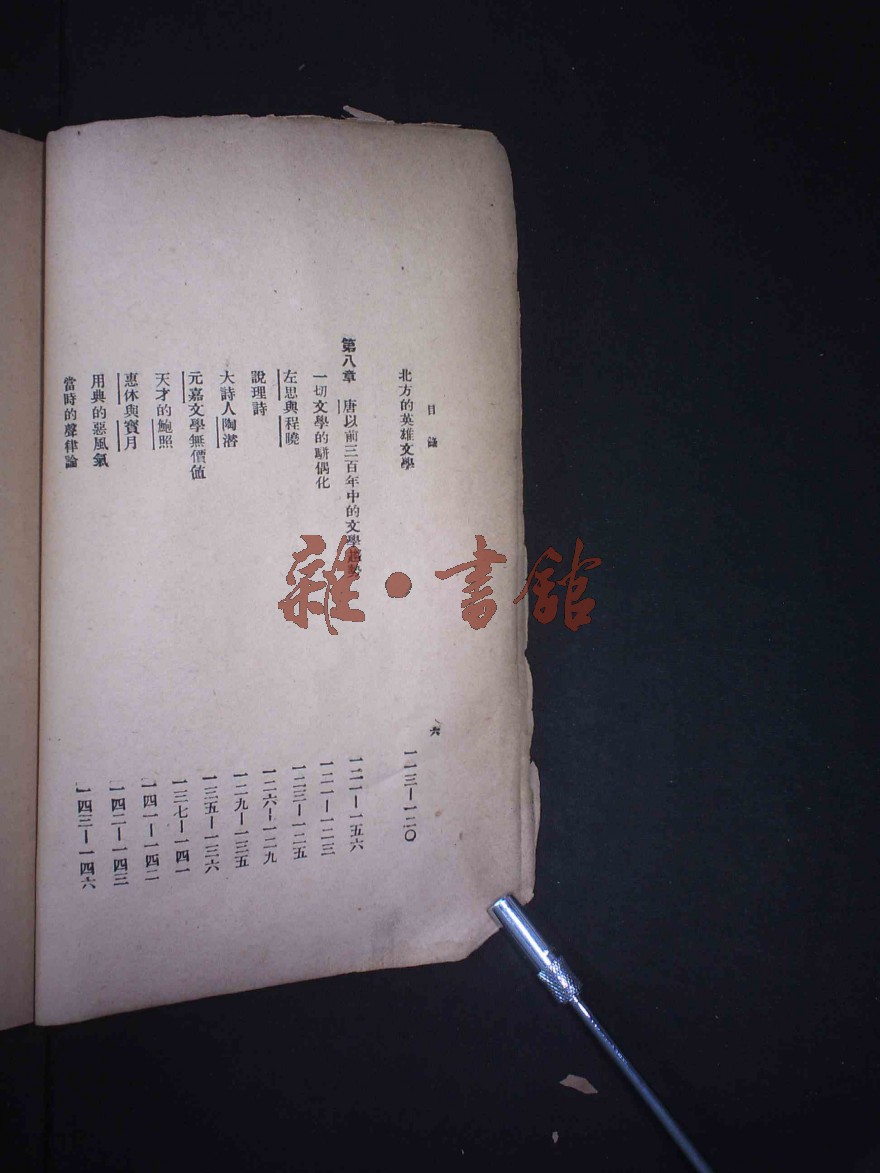 目錄
六
北方的英雄文學 一一三—一二〇
第八章 唐以前三百年中的文學趨勢 一二一—一五六
一切文學的駢偶化 一二一—一二三
左思與程曉 一二三—一二五
說理詩 一二六—一二九
大詩人陶潛 一二九—一三五
元嘉文學無價值 一三五—一三六
天才的鮑照 一三七—一四一
惠休與寶月 一四一—一四二
用典的惡風氣 一四二—一四三
當時的聲律論 一四三—一四六
雜·書館